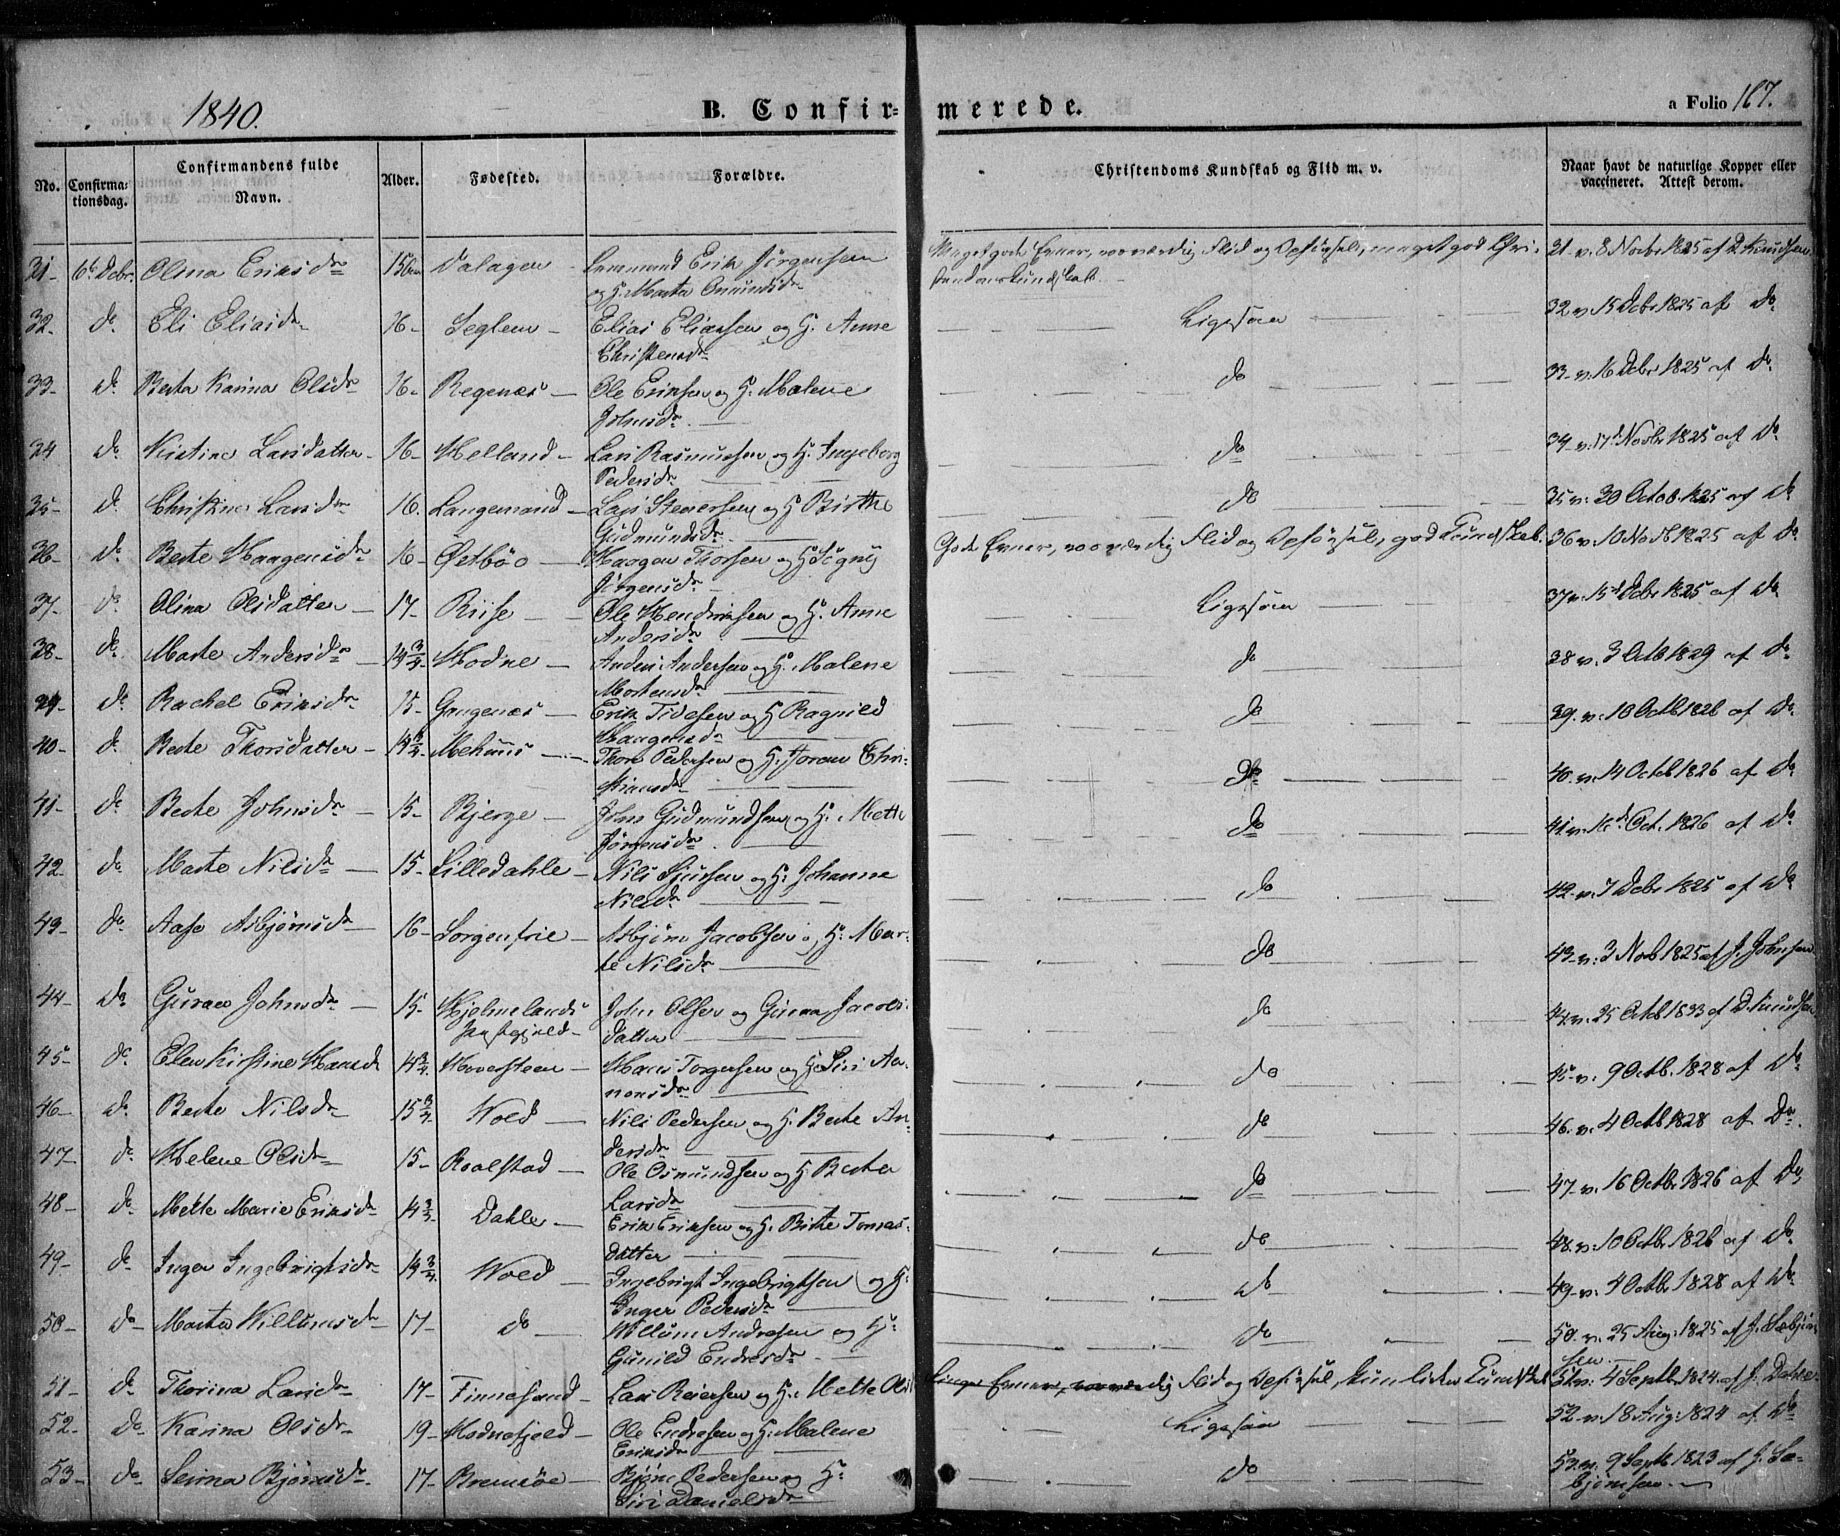 1840.
B. Confir-
merede.
a Folio 167.
No.
Confirma-
tionsdag.
Confirmandens fulde
Navn.
Alder.
Fødested.
Forældre.
Christendoms Kundskab og Flid m. v.
Naar havt de naturlige Kopper eller
vaccineret. Attest derom.
31- 6te Debr. Olina Eriksdr Dalagen Erik Jørgensen
og H. Marta Omundsdr
Meget gode Evner, Flid og Opførsel, meget god Chri-
stendomskundskab.
31- v. 8 Novbr 1825 af D. Knudsen
32- do Eli Eliasdr 16- Seglem - Elias Eliassen og H. Anne
Christensdr
Ligesaa
32 v. 15 Debr 1825 af Do
33- do Berta Karina Olsdr 16- Regenæs - Ole Eriksen og H. Malene
Johnsdr
do
33- v. 16 Debr 1825 af Do
34 do Kirstine Larsdatter - 16- Helland - Lars Rasmussen og H. Ingeborg
Pedersdr
do
34 v. 17d Novbr 1825 af Do
35- do Christine Larsdr 16. Langemand - Lars Stenersen og H Birthe
Gudmundsdr
do
35 v. 30 Octob. 1825 af Do
36- do Berte Haagensdr 16- Østbøe - Haagen Thorsen og H Signij
Jørgensdr
Gode Evner, Flid og Opførsel, god Kundskab.
36 v. 10 Nov 1825 af Do
37- do Olina Olsdatter - 17- Riise - Ole Hendriksen og H. Anne
Andersdr
Ligesaa
37 v. 15d Debr 1825 af Do
38- do Marte Andersdr - 14 3/4 Hodne - Anders Andersen og H. Malene
Mortensdr
do
38 v. 3 Octb 1829 af Do
39- do Rachel Eriksdr 15- Gangenæs - Erik Tidesen og H Ragnild
Haagensdr
do
39. v. 10 Octb 1826 af Do
40- do Berte Thorsdatter - 14 3/4 Mehuus - Thore Pedersen og H. Joran Chri-
stiansdr
do
40. v. 14 Octob 1826 af Do
41- do Berte Johnsdr 15- Bjerge - John Gudmundsen og H. Mette
Jørgensdr
do
41. v. Oct. 1826 af Do
42. do Marte Nilsdr - 15- Lilledahle - Nils Sjursen og H. Johanne
Nilsdr
do
42- v. 7 Debr 1825 af Do
43- do Aase Asbjørnsdr - 16- Sorgenfrie - Asbjørn Jacobsen og H. Mar-
te Nilsdr
do
43- v. 3 Novb 1825 af J. Johnsen
44- do Guraer Johnsdr - 15- Hjelmelands
Præstegjeld - John Olsen og Gunna Jacobs-
datter
do
44. v. 25 Octb 1833 af D. Knudsen
45- do Elen Kirstine Hansdr 14 3/4 Hoversteen - Hans Torgersen og H. Siri Aa-
nonsdr
do
45- v. 9 Octb. 1828 af Do
46- do Berte Nilsdr 15 3/4 Wold - Nils Pedersen og H. Berte An-
dersdr
do
46. v. 4 Octb 1828 af Do
47- do Helene Olsdr 15- Roalstad - Ole Osmundsen og H. Berta
Larsdr
do
47- v. 16 Octbr 1826 af Do
48- do Mette Marie Eriksdr 14 3/4 Dahle - Erik Eriksen og H. Birte Tomas-
datter
do
48. v. 10 Octbr 1826 af Do
49- do Inger Ingebrigtsdr 14 3/4 Wold - Ingebrigt Ingebrigtsen og H.
Inger Pedersdr
do
49- v. 4 Octbr 1828 af Do
50- do Marta Willumsdr 17- do - Willum Andresen og H:
Gunild Endresdr
do
50. v. 25 Aug: 1825 af J. Sæbjørn-
sen
51- do Thorina Larsdr 17- Finnesand - Lars Reiersen og H. Mette Olsd
Ringe Evner, Flid og Opførsel, Kundskab
51 v. 4 Septb 1824 af J. Dahle
52- do Karina Olsdr 19- Hodnefjeld - Ole Endresen og H. Malene
Eriksdr
Ligesaa
52- v. 18 Aug: 1824 af Do
53- do Serina Bjørnsdr 17- Bremsøe - Bjørn Pedersen og H:
Siri Danielsdr
do
53. v. 9 Septb 1823 af J. Sæ-
bjørnsen